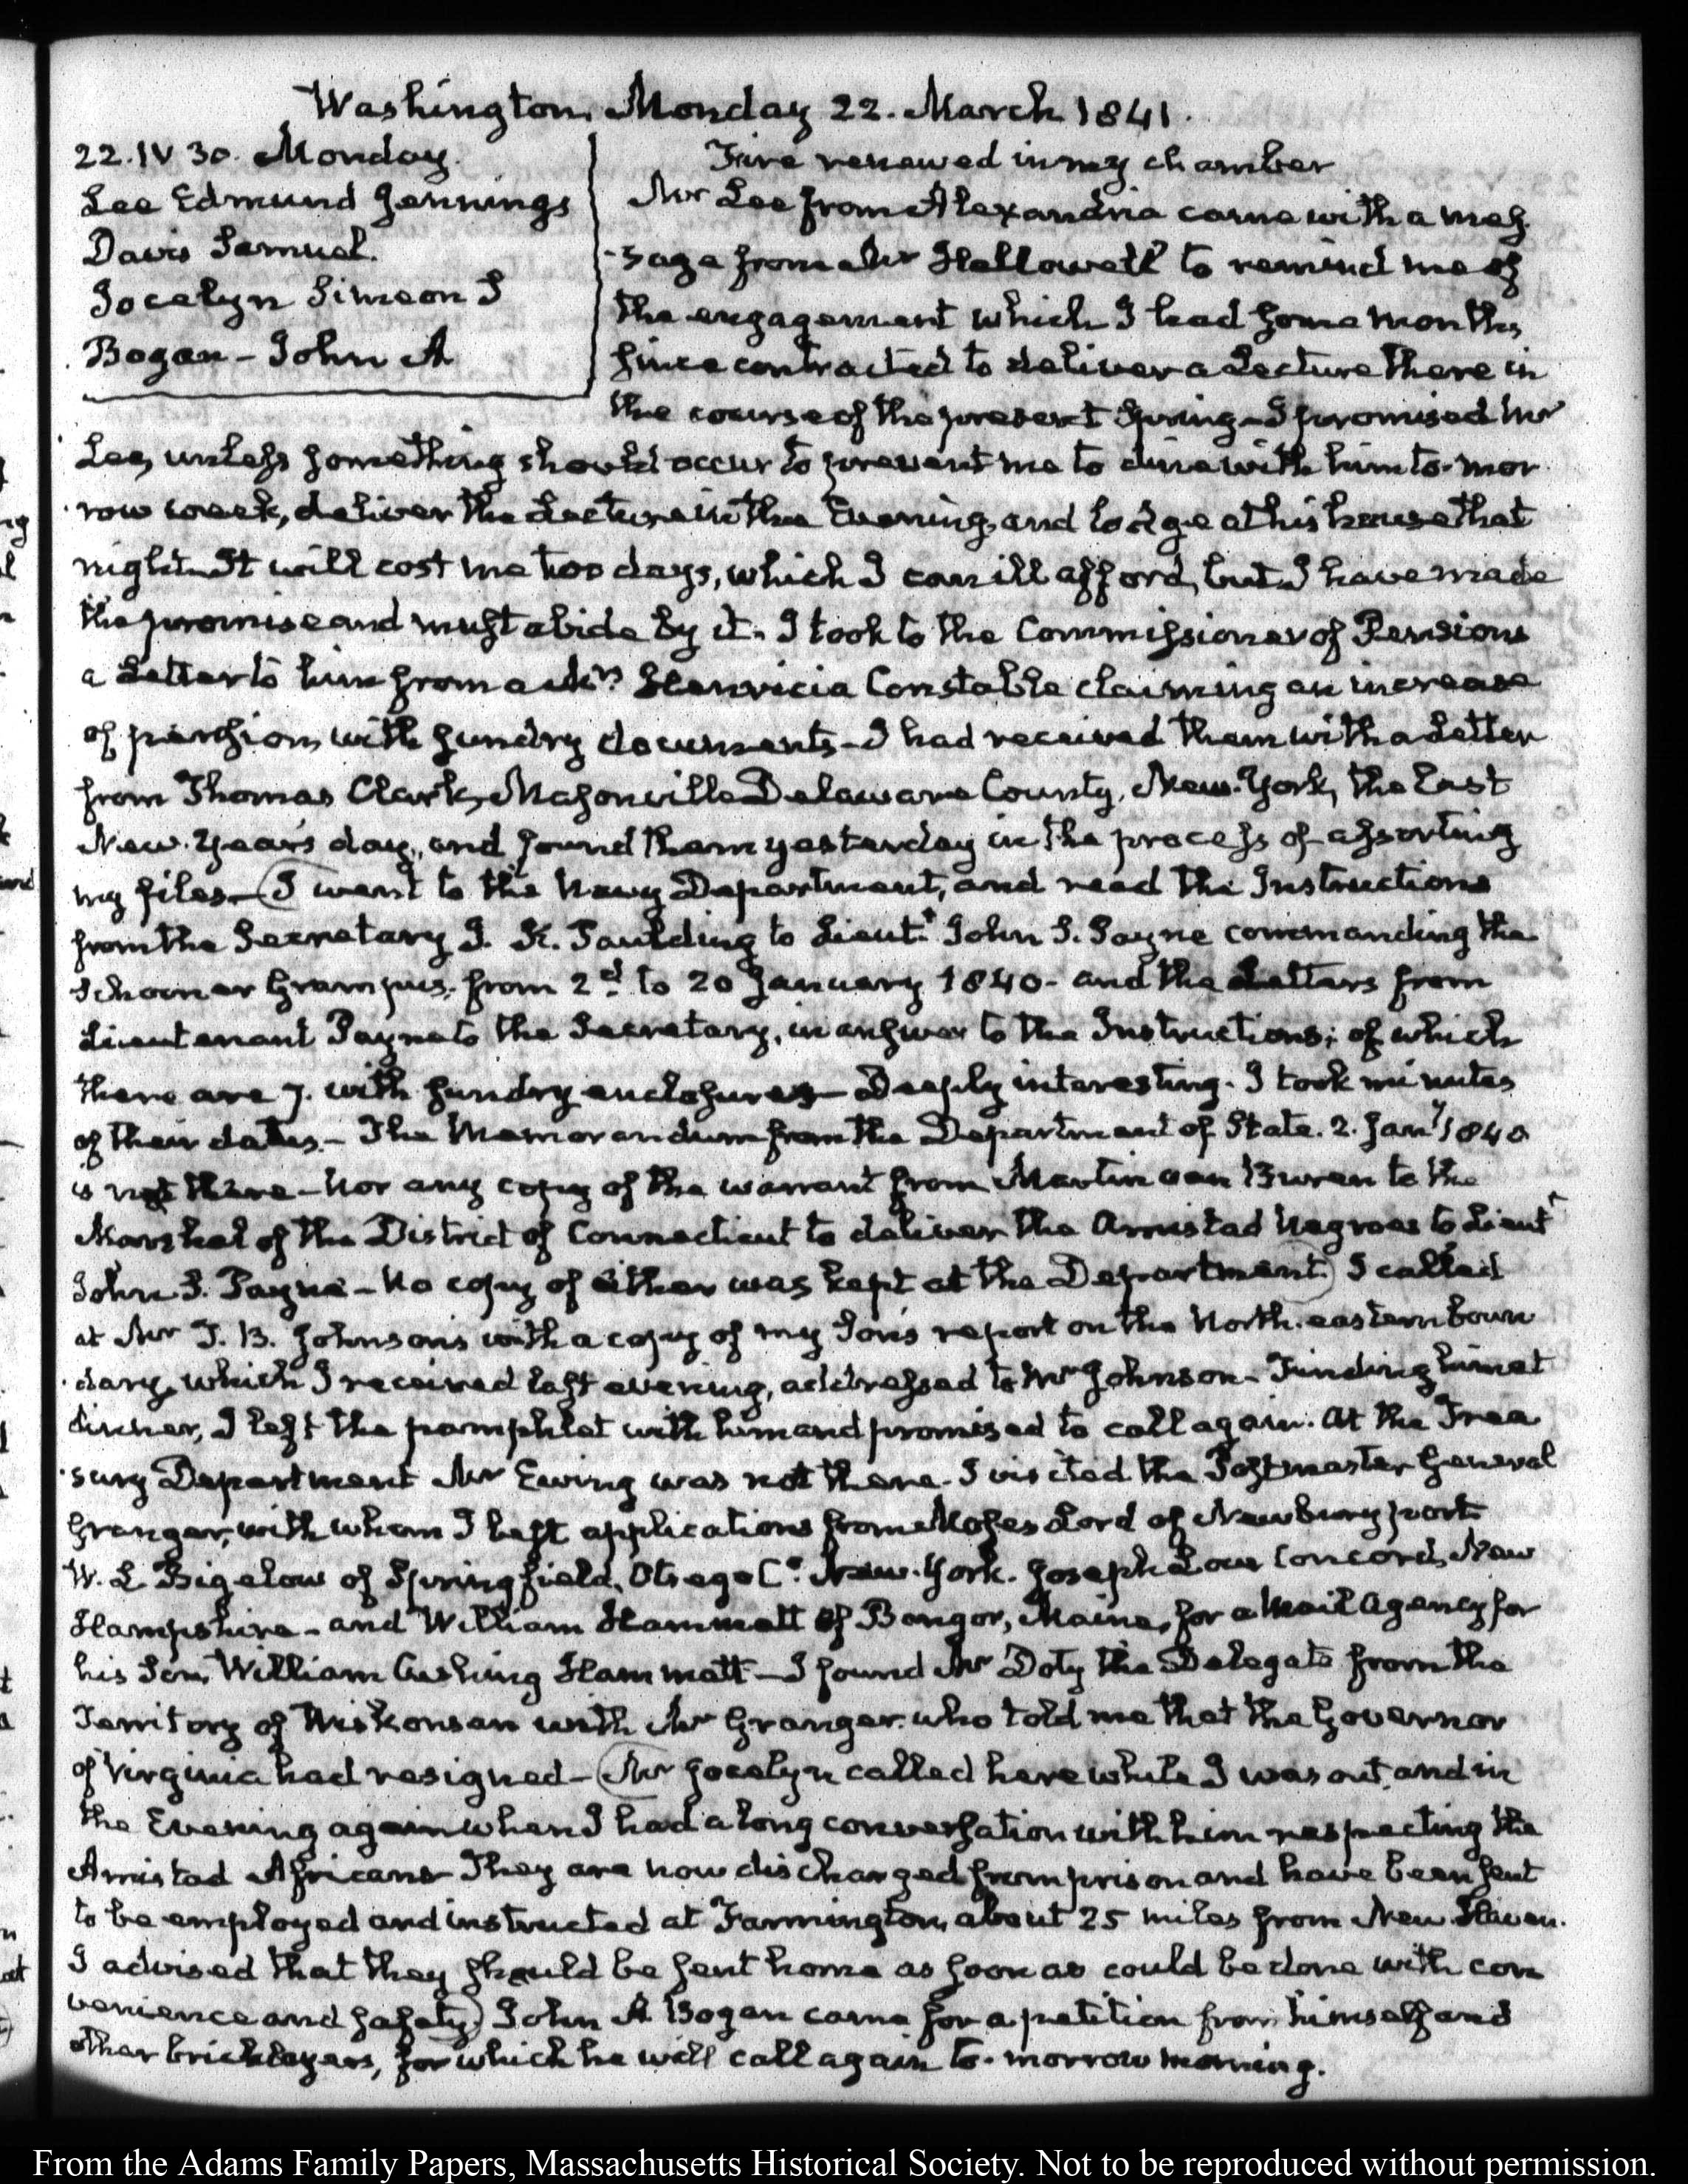 Washington, Monday 22. March 1841.
22. IV 30. Monday.
Lee Edmund Jennings
Davis Samuel.
Jocelyn Simeon S
Bogan - John A
Fire renewed in my chamber
Mr Lee from Alexandria came with a mes
-sage from Mr Hallowell to remind me of
the engagement which I had some months
since contracted to deliver a Lecture there in
the course of the present Spring - I promised Mr
Lee, unless something should occur to prevent me to dine with him to-mor
row week, deliver the Lecture in the Evening, and lodge at his house that
night. It will cost me two days, which I can ill afford, but I have made
the promise and must abide by it. I took to the Commissioner of Pensions
a Letter to him from a Mrs Henricia Constable claiming an increase
of pension, with sundry documents - I had received them with a Letter
from Thomas Clark, Masonville Delaware County, New-York, the last
New-Year's day, and found them yesterday in the process of assorting
my files - I went to the Navy Department, and read the Instructions
from the Secretary J. K. Paulding to Lieut.t John S. Payne commanding the
Schooner Grampus, from 2d to 20 January 1840 - and the Letters from
Lieutenant Payne to the Secretary, in answer to the Instructions; of which
there are 7. with sundry enclosures - Deeply interesting. I took minutes
of their dates. - The Memorandum from the Department of State. 2. Jany 1840
is not there - nor any copy of the warrant from Martin van Buren to the
Marshal of the District of Connecticut to deliver the Amistad Negroes to Lieut
John S. Payne - No copy of either was kept at the Department. I called
at Mr J. B. Johnson's with a copy of my Son's report on the North-eastern boun
dary, which I received last evening, addressed to Mr Johnson - Finding him at
dinner, I left the pamphlet with him and promised to call again. At the Trea
-sury Department Mr Ewing was not there. I visited the Postmaster General
Granger, with whom I left applications from Moses Lord of Newburyport
W. L Bigelow of Springfield, Otsego Co. New-York. Joseph Low Concord, New
Hampshire - and William Hammatt of Bangor, Maine, for a Mail agency for
his Son, William Cushing Hammatt - I found Mr Doty the Delegate from the
Territory of Wiskonsan with Mr Granger. who told me that the Governor
of Virginia had resigned - Mr Jocelyn called here while I was out, and in
the Evening again when I had a long conversation with him respecting the
Amistad Africans They are now discharged from prison and have been sent
to be employed and instructed at Farmington, about 25 miles from New Haven.
I advised that they should be sent home as soon as could be done with con
venience and safety) John A Bogan came for a petition from himself and
other bricklayers, for which he will call again to-morrow morning.
From the Adams Family Papers, Massachusetts Historical Society. Not to be reproduced without permission.